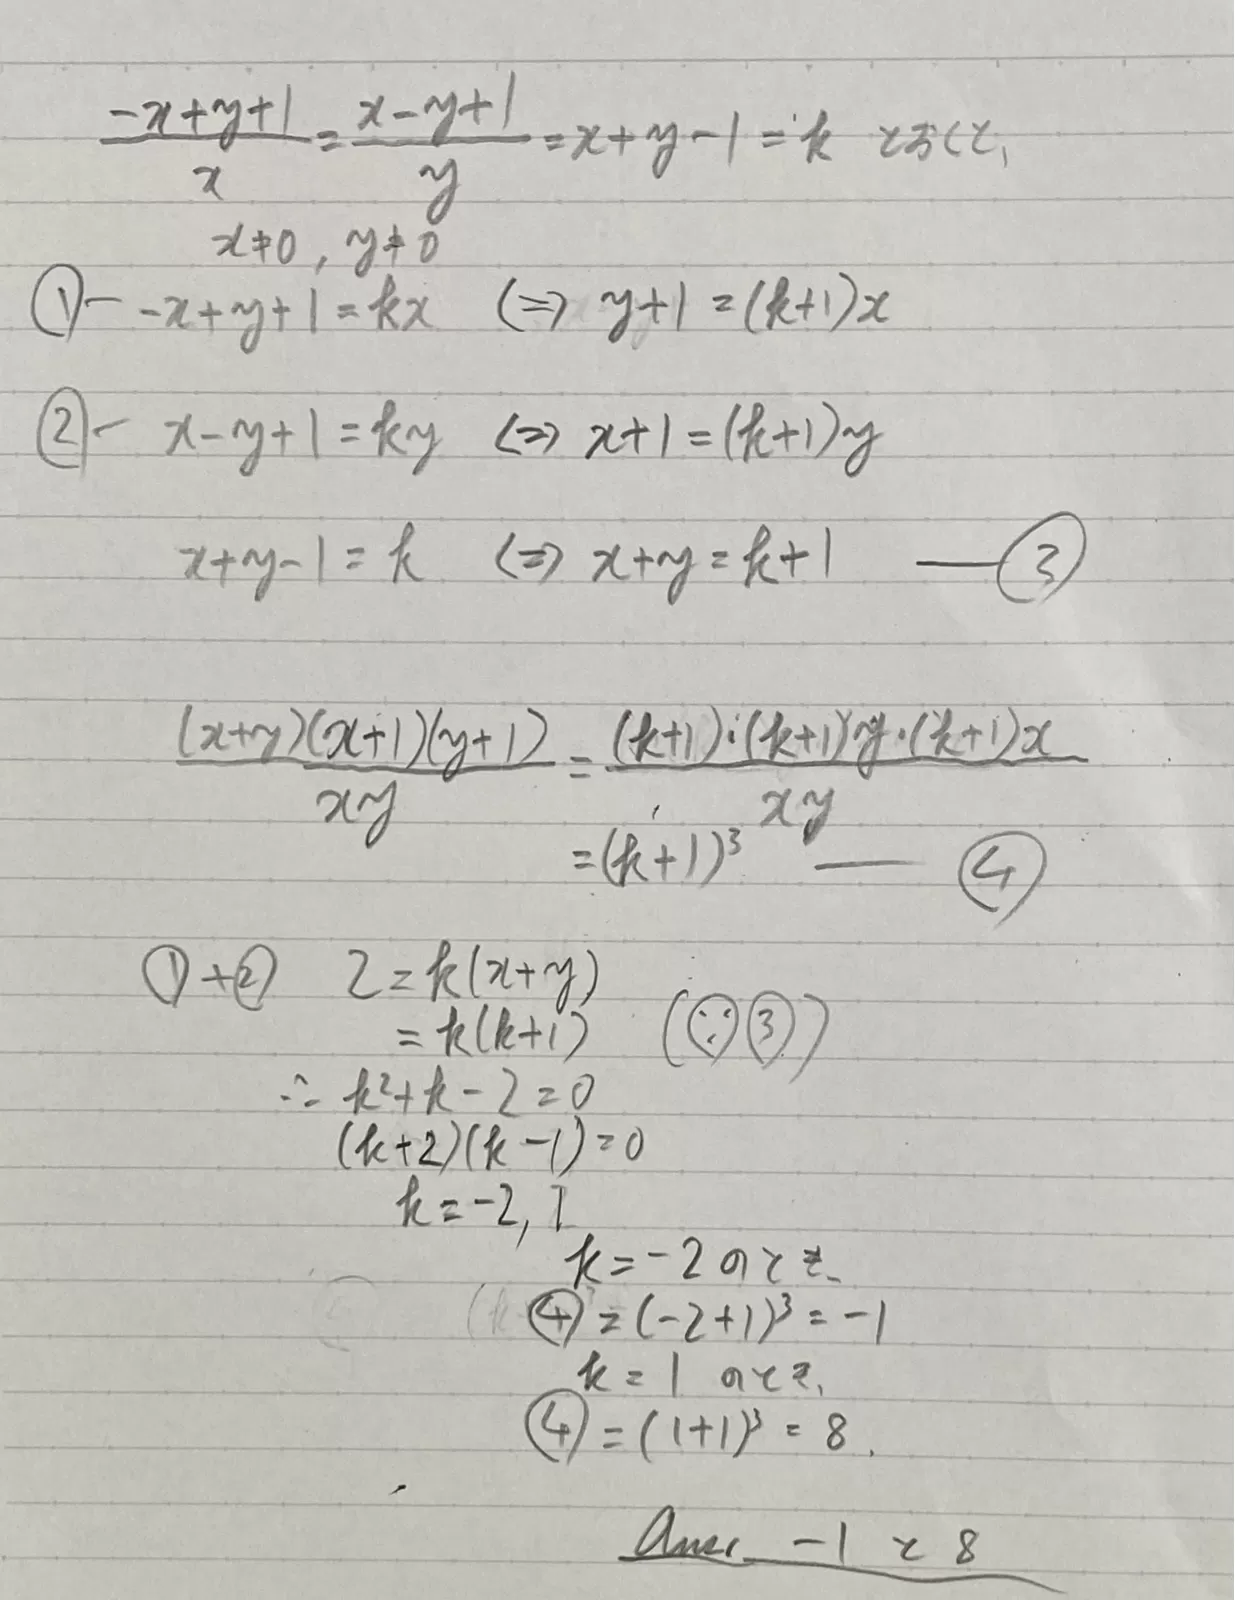 (-x+y+1)/x = (x-y+1)/y = x+y-1 = k とおくと、
x≠0, y≠0
①― -x+y+1=kx ⇔ y+1=(k+1)x
②― x-y+1=ky ⇔ x+1=(k+1)y
x+y-1=k ⇔ x+y=k+1 ―③
(x+y)(x+1)(y+1)/xy = (k+1)・(k+1)y・(k+1)x/xy
=(k+1)³ ―④
①+② 2=k(x+y)
=k(k+1) (∵③)
∴ k²+k-2=0
(k+2)(k-1)=0
k=-2, 1
k=-2のとき、
④=(-2+1)³=-1
k=1のとき、
④=(1+1)³=8.
Ans. -1と8